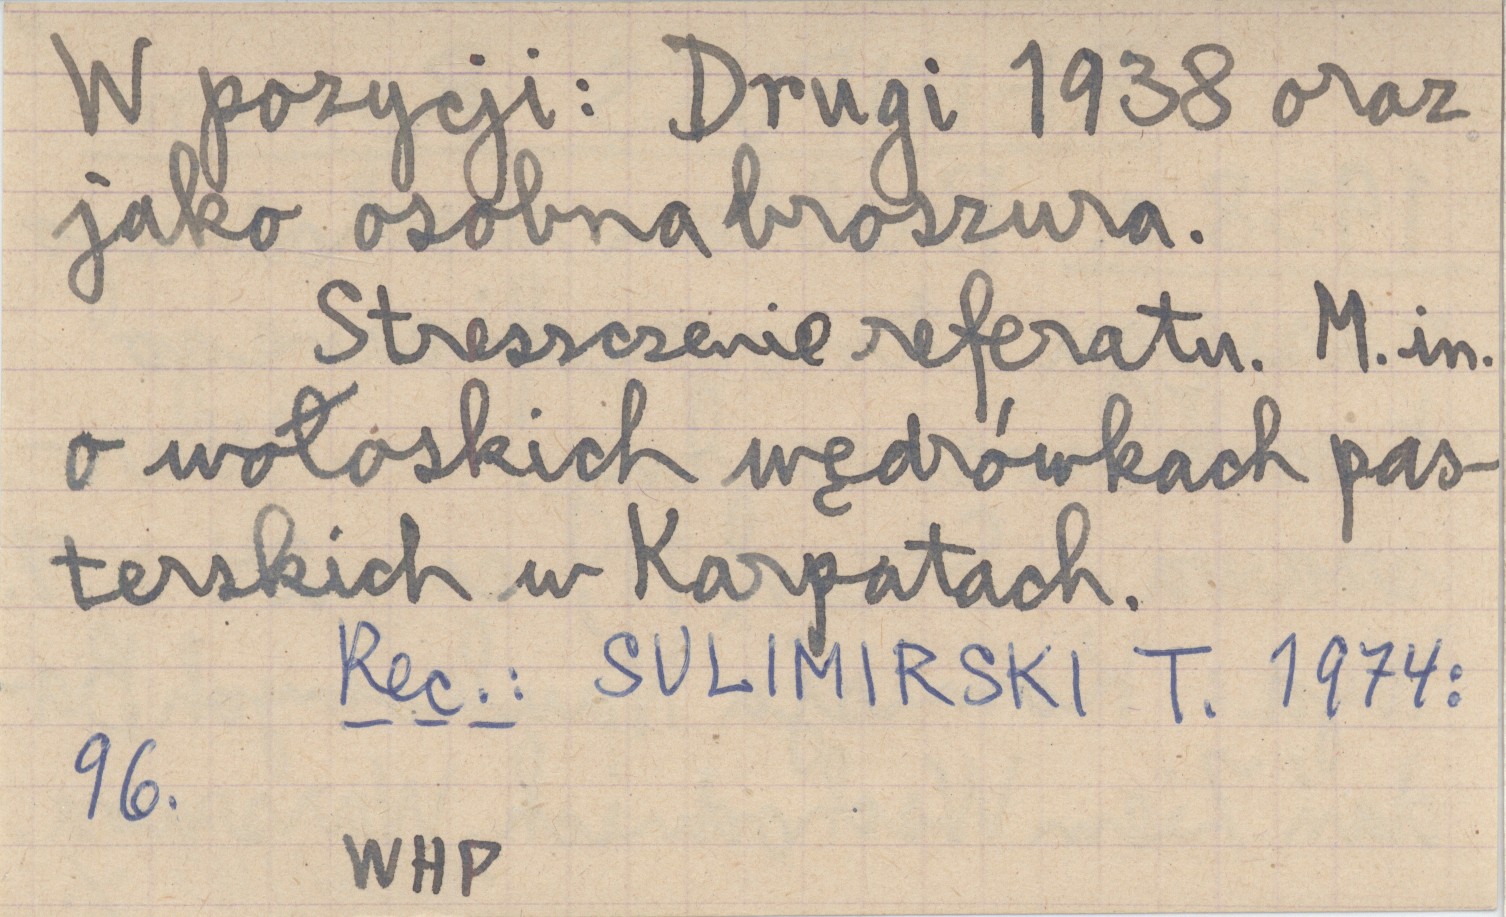 W pozycji: Drugi 1938 oraz
jako osobna broszura.
Streszczenie referatu. M. in.
o wołoskich wędrówkach pas-
terskich w Karpatach.
Rec.: SULIMIRSKI T. 1974:
96.
WHP